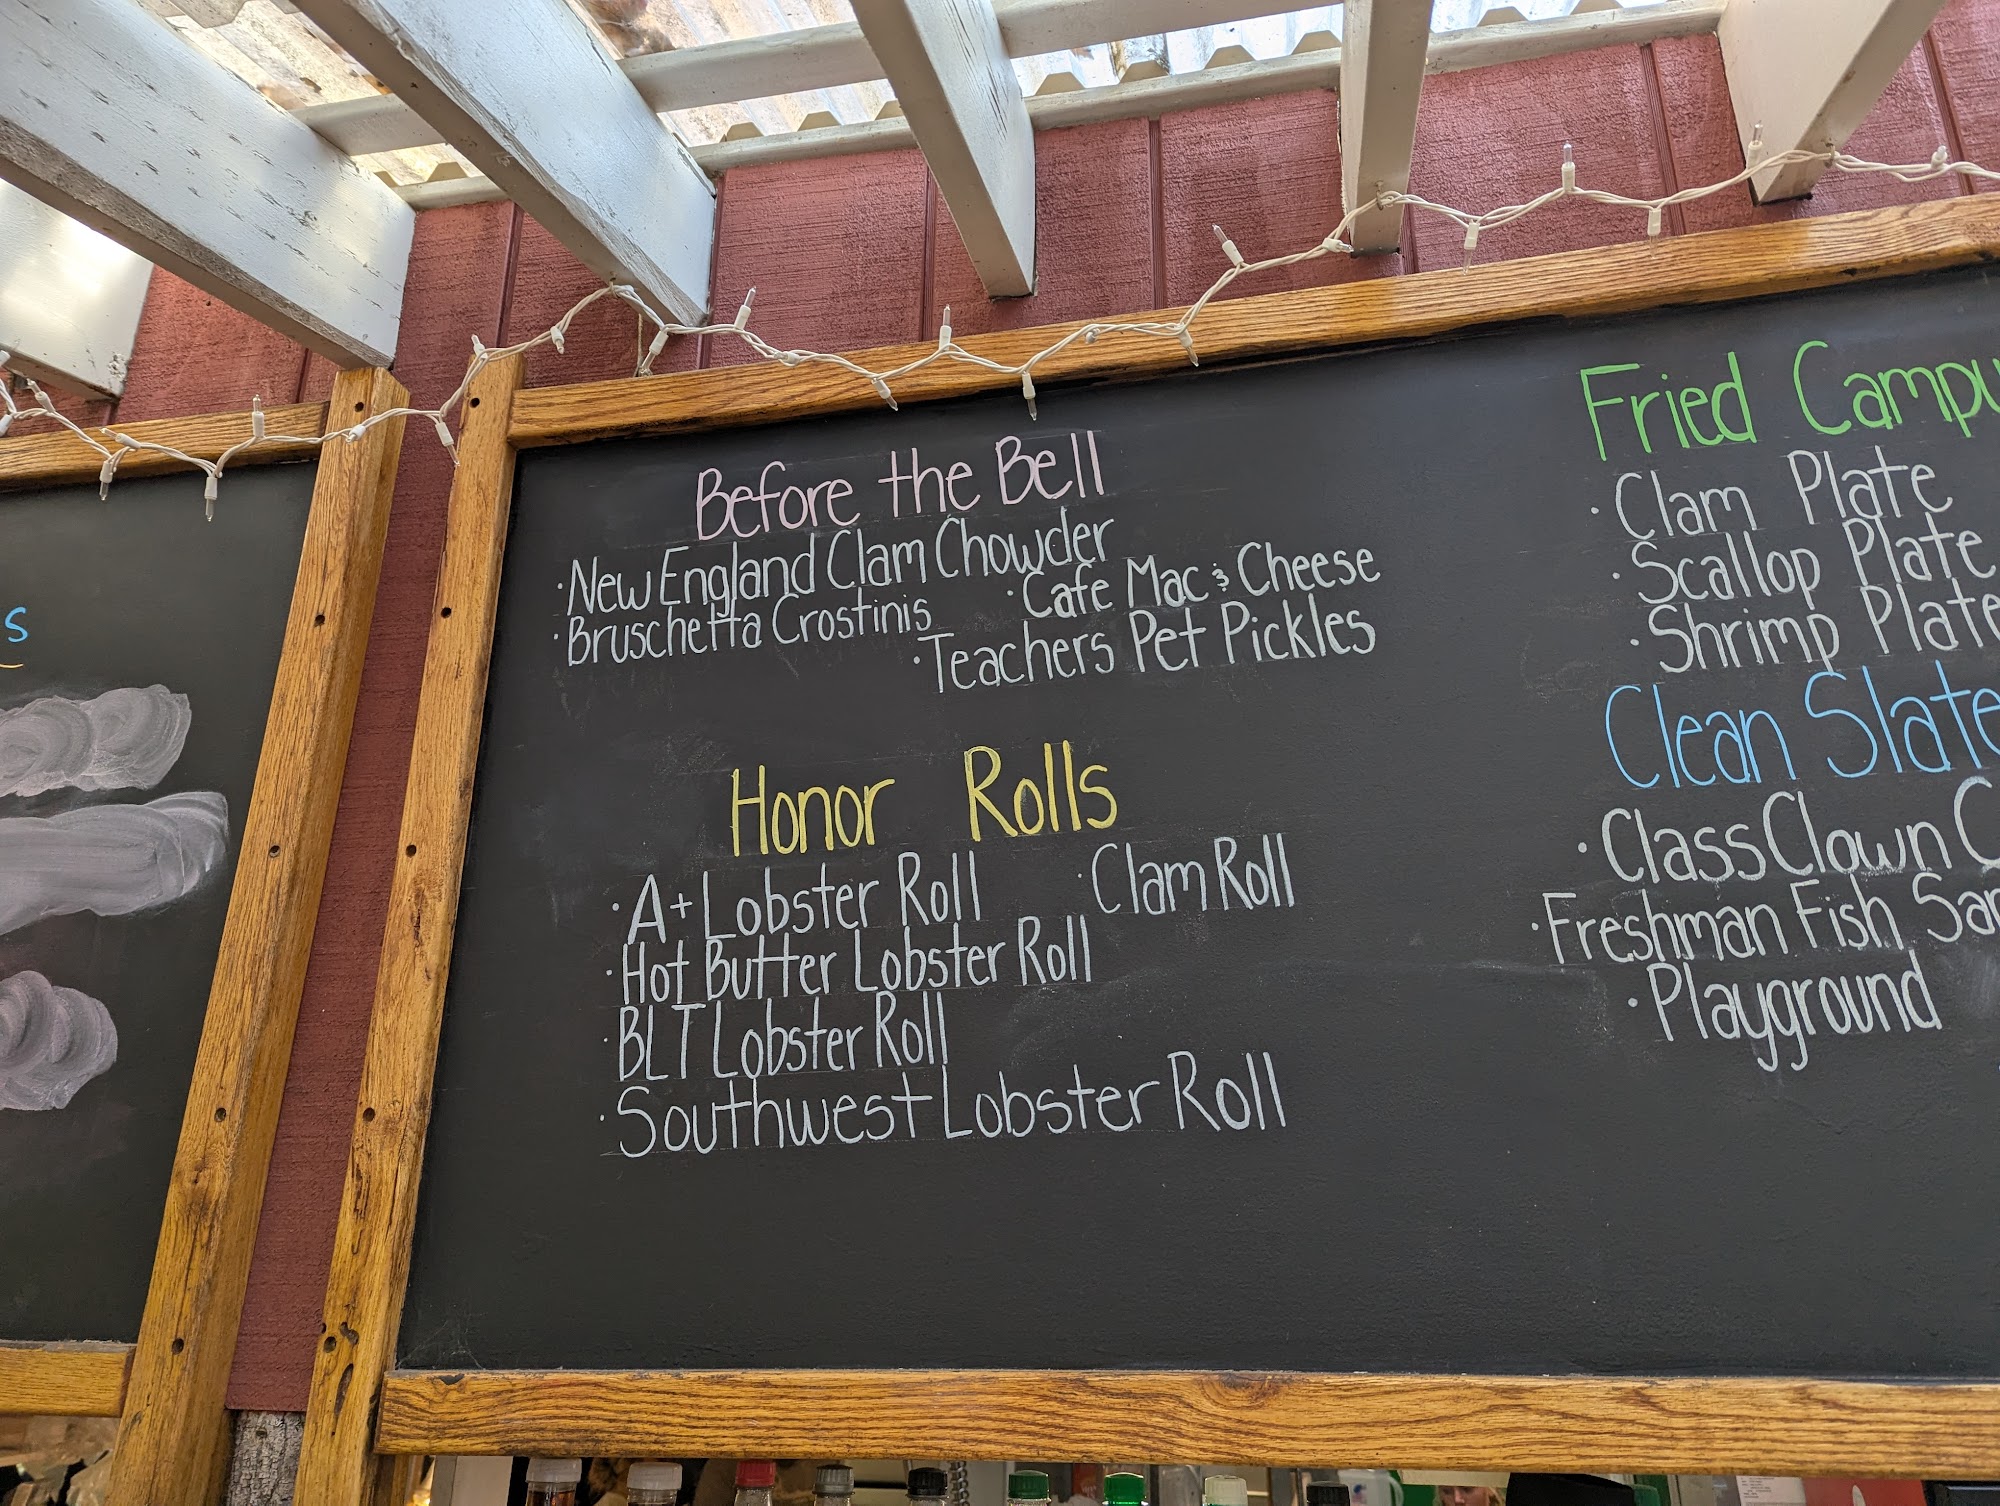 s
Before the Bell
· New England Clam Chowder
· Bruschetta Crostinis
· Cafe Mac & Cheese
· Teachers Pet Pickles
Honor Rolls
· A+ Lobster Roll
· Clam Roll
· Hot Butter Lobster Roll
· BLT Lobster Roll
· Southwest Lobster Roll
Fried Campu
· Clam Plate
· Scallop Plate
· Shrimp Plate
Clean Slate
· Class Clown C
· Freshman Fish San
· Playground